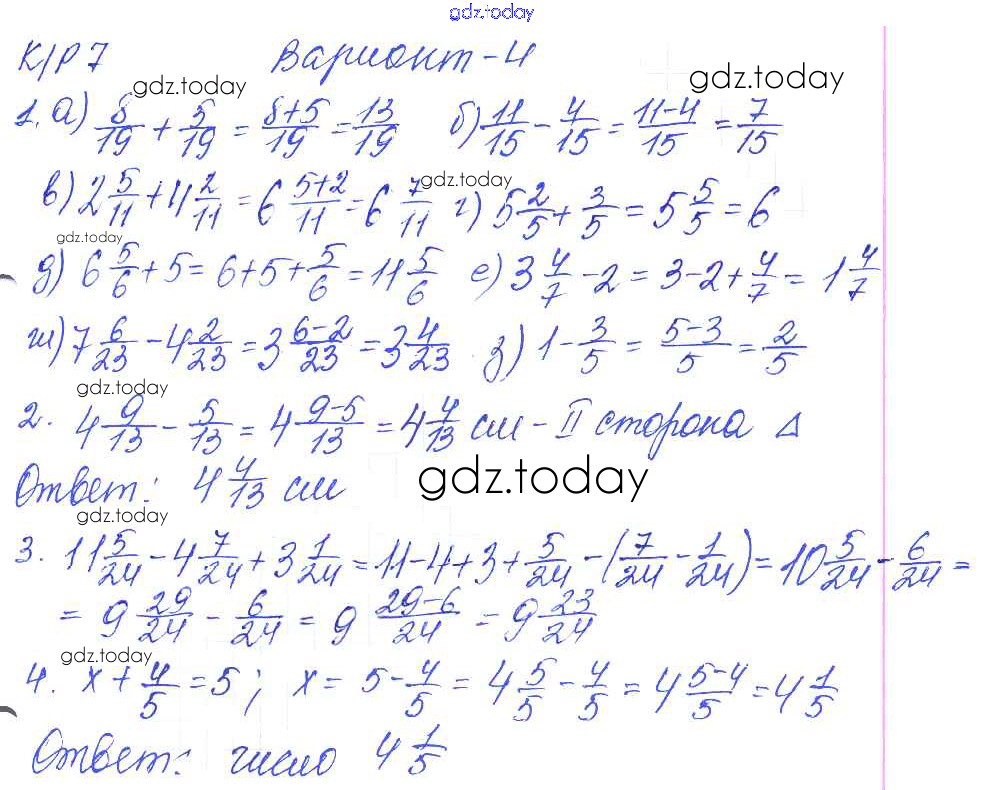 gdz.today
К/Р 7 Вариант-4
gdz.today gdz.today
1. а) 8/19 + 5/19 = 8+5/19 = 13/19 б) 11/15 - 4/15 = 11-4/15 = 7/15
gdz.today
в) 2 5/11 + 4 2/11 = 6 5+2/11 = 6 7/11 г) 5 2/5 + 3/5 = 5 5/5 = 6
gdz.today
д) 6 5/6 + 5 = 6+5+ 5/6 = 11 5/6 е) 3 4/7 - 2 = 3-2+ 4/7 = 1 4/7
ж) 7 6/23 - 4 2/23 = 3 6-2/23 = 3 4/23 з) 1 - 3/5 = 5-3/5 = 2/5
gdz.today
2. 4 9/13 - 5/13 = 4 9-5/13 = 4 4/13 см - II сторона Δ
Ответ: 4 4/13 см gdz.today
gdz.today
3. 11 5/24 - 4 7/24 + 3 1/24 = 11-4+3+ 5/24 - (7/24 - 1/24) = 10 5/24 - 6/24 =
= 9 29/24 - 6/24 = 9 29-6/24 = 9 23/24
gdz.today
4. x + 4/5 = 5; x = 5 - 4/5 = 4 5/5 - 4/5 = 4 5-4/5 = 4 1/5
Ответ: число 4 1/5